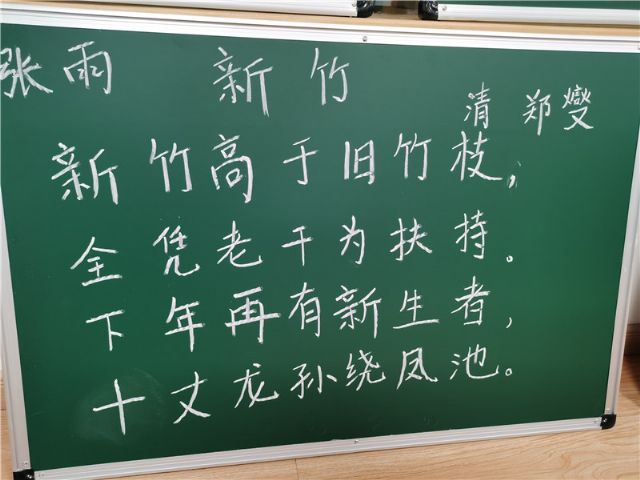 张雨 新竹
清 郑燮
新竹高于旧竹枝，
全凭老干为扶持。
下年再有新生者，
十丈龙孙绕凤池。